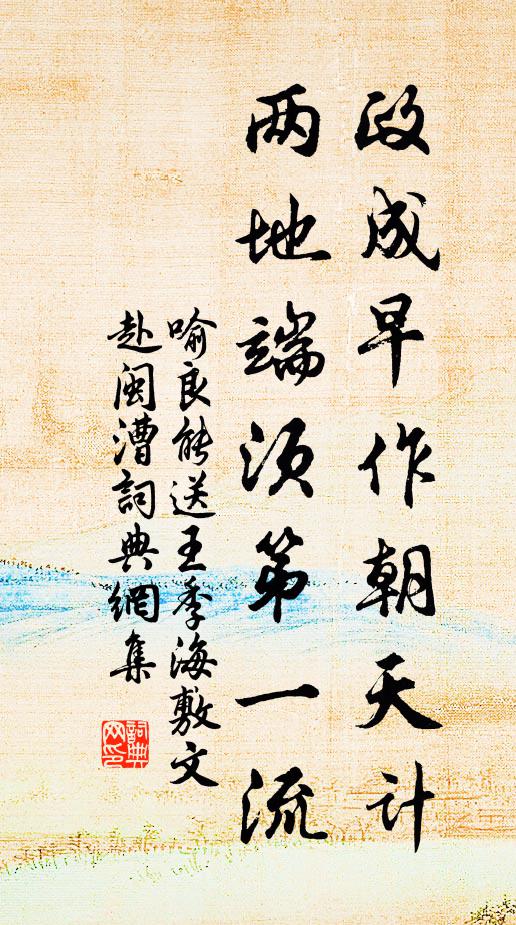 政成早作朝天计
两地端须第一流
喻良能送王季海敷文
赴闽漕詞典網集
詞典
网印